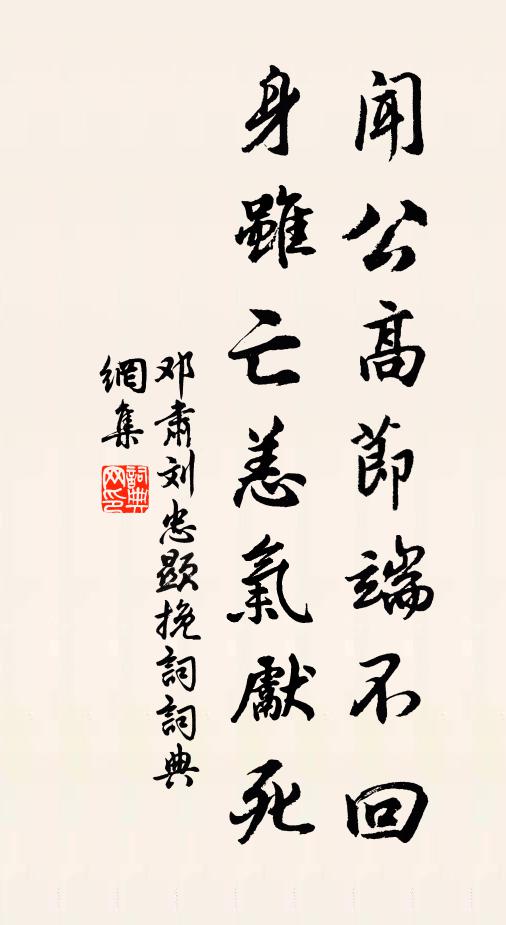 闻公高節端不回
身雖亡恙氣獻死
邓肅刘忠顯挽詞詞典
網集
詞典网印